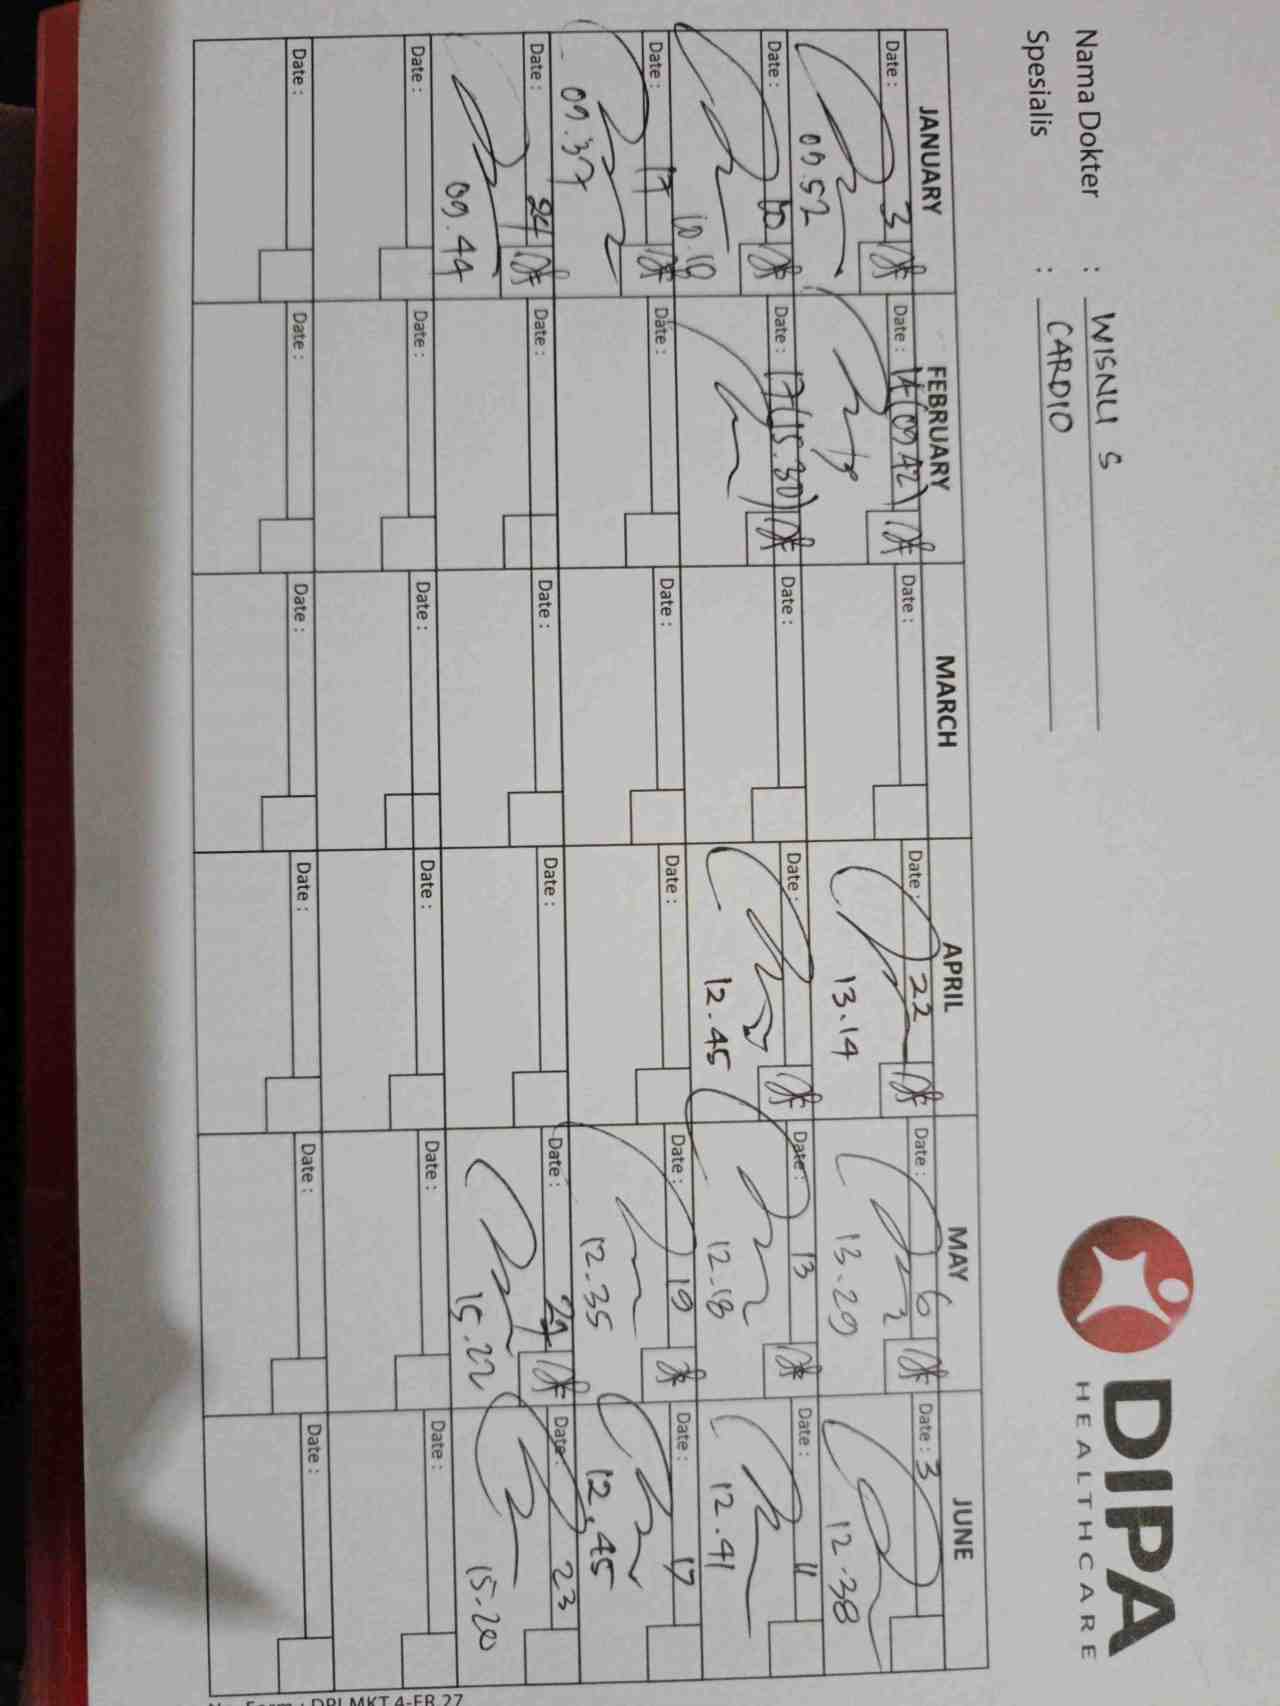 Nama Dokter : WISNU S
Spesialis : CARDIO
DIPA
HEALTHCARE
JANUARY FEBRUARY MARCH APRIL MAY JUNE
Date : 3 Date : 14 (09.42) Date : Date : 22 Date : 6 Date : 3
09.52 13.14 13.29 12.38
Date : 10 Date : 17 (15.30) Date : Date : Date : 13 Date : 11
10.18 12.45 12.18 12.41
Date : 17 Date : Date : Date : Date : 19 Date : 17
09.37 12.35 12.45
Date : 24 Date : Date : Date : Date : 27 Date : 23
09.44 15.22 15.20
Date : Date : Date : Date : Date : Date :
Date : Date : Date : Date : Date : Date :
No. Form : DPI.MKT.4-FR.27